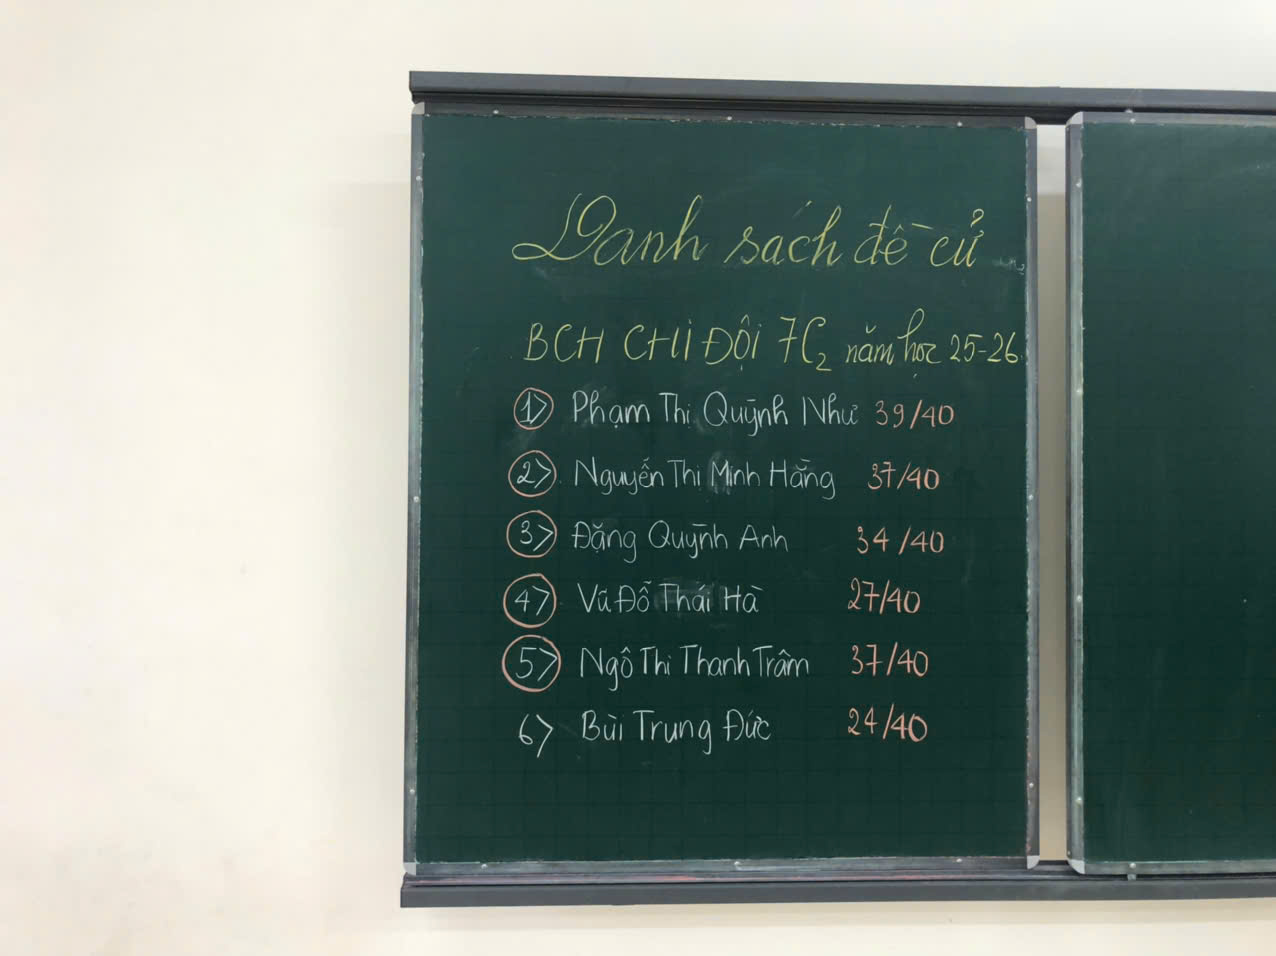 Danh sách đề cử
BCH CHI ĐỘI 7C₂ năm học 25-26
1> Phạm Thị Quỳnh Như 39/40
2> Nguyễn Thị Minh Hằng 37/40
3> Đặng Quỳnh Anh 34/40
4> Vũ Đỗ Thái Hà 27/40
5> Ngô Thị Thanh Trâm 37/40
6> Bùi Trung Đức 24/40